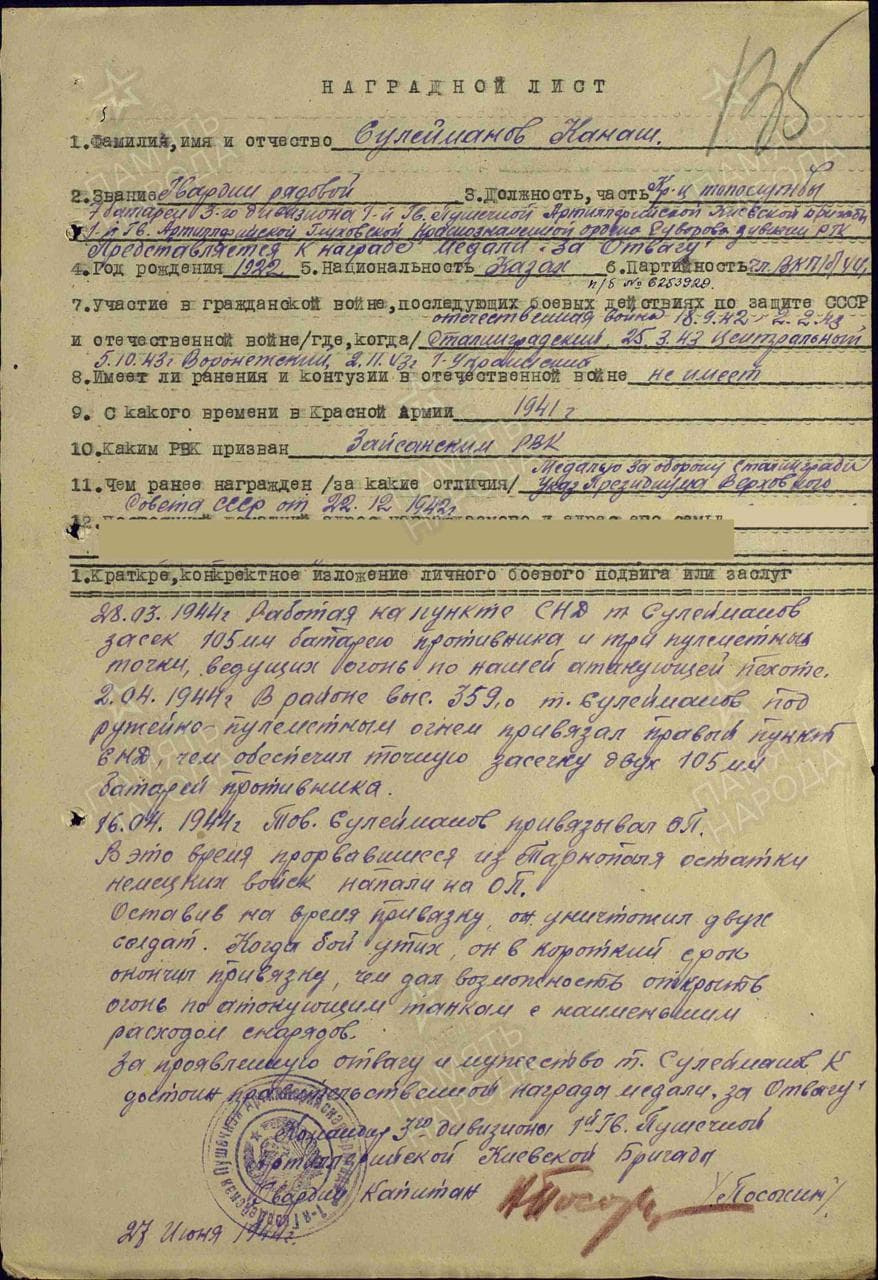 135
НАГРАДНОЙ ЛИСТ
1.Фамилия,имя и отчество Сулейманов Канаш.
2.Звание Гвардии рядовой 3.Должность,часть Кр-ц топослужбы
7 батареи 3-го дивизиона 1-й Гв. Пушечной Артиллерийской Киевской бригады
1-й Гв. Артиллерийской Глуховской Краснознаменной ордена Суворова дивизии РГК
Представляется к награде Медали "За Отвагу"
4.Год рождения 1922 5.Национальность Казах 6.Партийность чл. ВКП/б/
п/б № 6253920.
7.Участие в гражданской войне,последующих боевых действиях по защите СССР
отечественная война 18.9.42 - 2.2.43
и отечественной войне/где,когда/ Сталинградский, 25.3.43 Центральный
5.10.43г Воронежский, 2.11.43г 1-Украинский
8.Имеет ли ранения и контузии в отечественной войне не имеет
9. С какого времени в Красной Армии 1941г
10.Каким РВК призван Зайсанским РВК
Медалью За оборону Сталинграда
11.Чем ранее награжден /за какие отличия/ Указ Президиума Верховного
Совета СССР от 22.12.1942г
1.Краткре,конкретное изложение личного боевого подвига или заслуг
28.03.1944г Работая на пункте СНД т. Сулейманов
засек 105 мм батарею противника и три пулеметных
точки, ведущих огонь по нашей атакующей пехоте.
2.04.1944г В районе выс. 359,0 т. Сулейманов под
ружейно-пулеметным огнем привязал правый пункт
СНД, чем обеспечил точную засечку двух 105 мм
батарей противника.
16.04.1944г Тов. Сулейманов привязывал ОП.
В это время прорвавшиеся из Тарнополя остатки
немецких войск напали на ОП.
Оставив на время привязку, он уничтожил двух
солдат. Когда бой утих, он в короткий срок
окончил привязку, чем дал возможность открыть
огонь по атокующим танкам с наименьшим
расходом снарядов.
За проявленную отвагу и мужество т. Сулейманов К
достоин правительственной награды медали "За Отвагу"
Командир 3го дивизиона 1й Гв. Пушечной
Артиллерийской Киевской Бригады
Гвардии Капитан /Посохин/
27 Июня 1944г.
ПАМЯТЬ НАРОДА